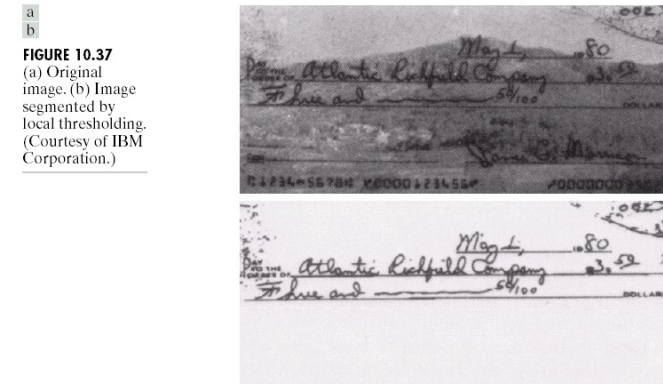 a
b
FIGURE 10.37
(a) Original
image. (b) Image
segmented by
local thresholding.
(Courtesy of IBM
Corporation.)
May 1, 80
PAY
TO THE
ORDER OF Atlantic Richfield Company 3. 50
Three and 50/100
DOLLAR
May 1, 80
PAY
TO THE
ORDER OF Atlantic Richfield Company 3. 50
Three and 50/100
DOLLAR